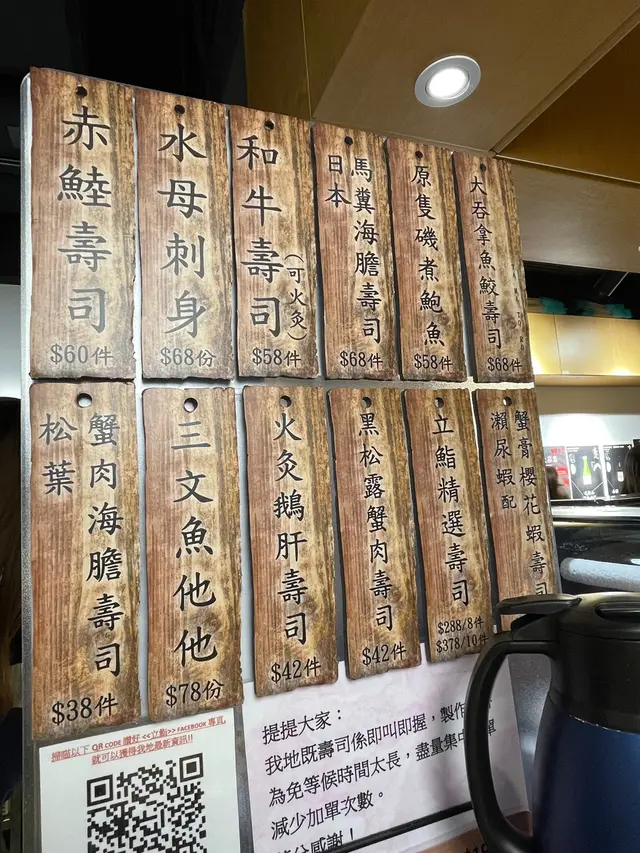 赤鯥壽司
$60件
水母刺身
$68份
和牛壽司
(可火灸)
$58件
日本
馬糞海膽壽司
$68件
原隻磯煮鮑魚
$58件
大吞拿魚鮫壽司
$68件
松葉
蟹肉海膽壽司
$38件
三文魚他他
$78份
火灸鵝肝壽司
$42件
黑松露蟹肉壽司
$42件
立鮨精選壽司
$288/8件
$378/10件
蟹膏櫻花蝦壽司
瀨尿蝦配
掃瞄以下 QR CODE 讚好 <<立點>> FACEBOOK 專頁,
就可以獲得我地最新資訊!!
提提大家：
我地既壽司係即叫即握，製作
為免等候時間太長，盡量集中 單
減少加單次數。
感謝！